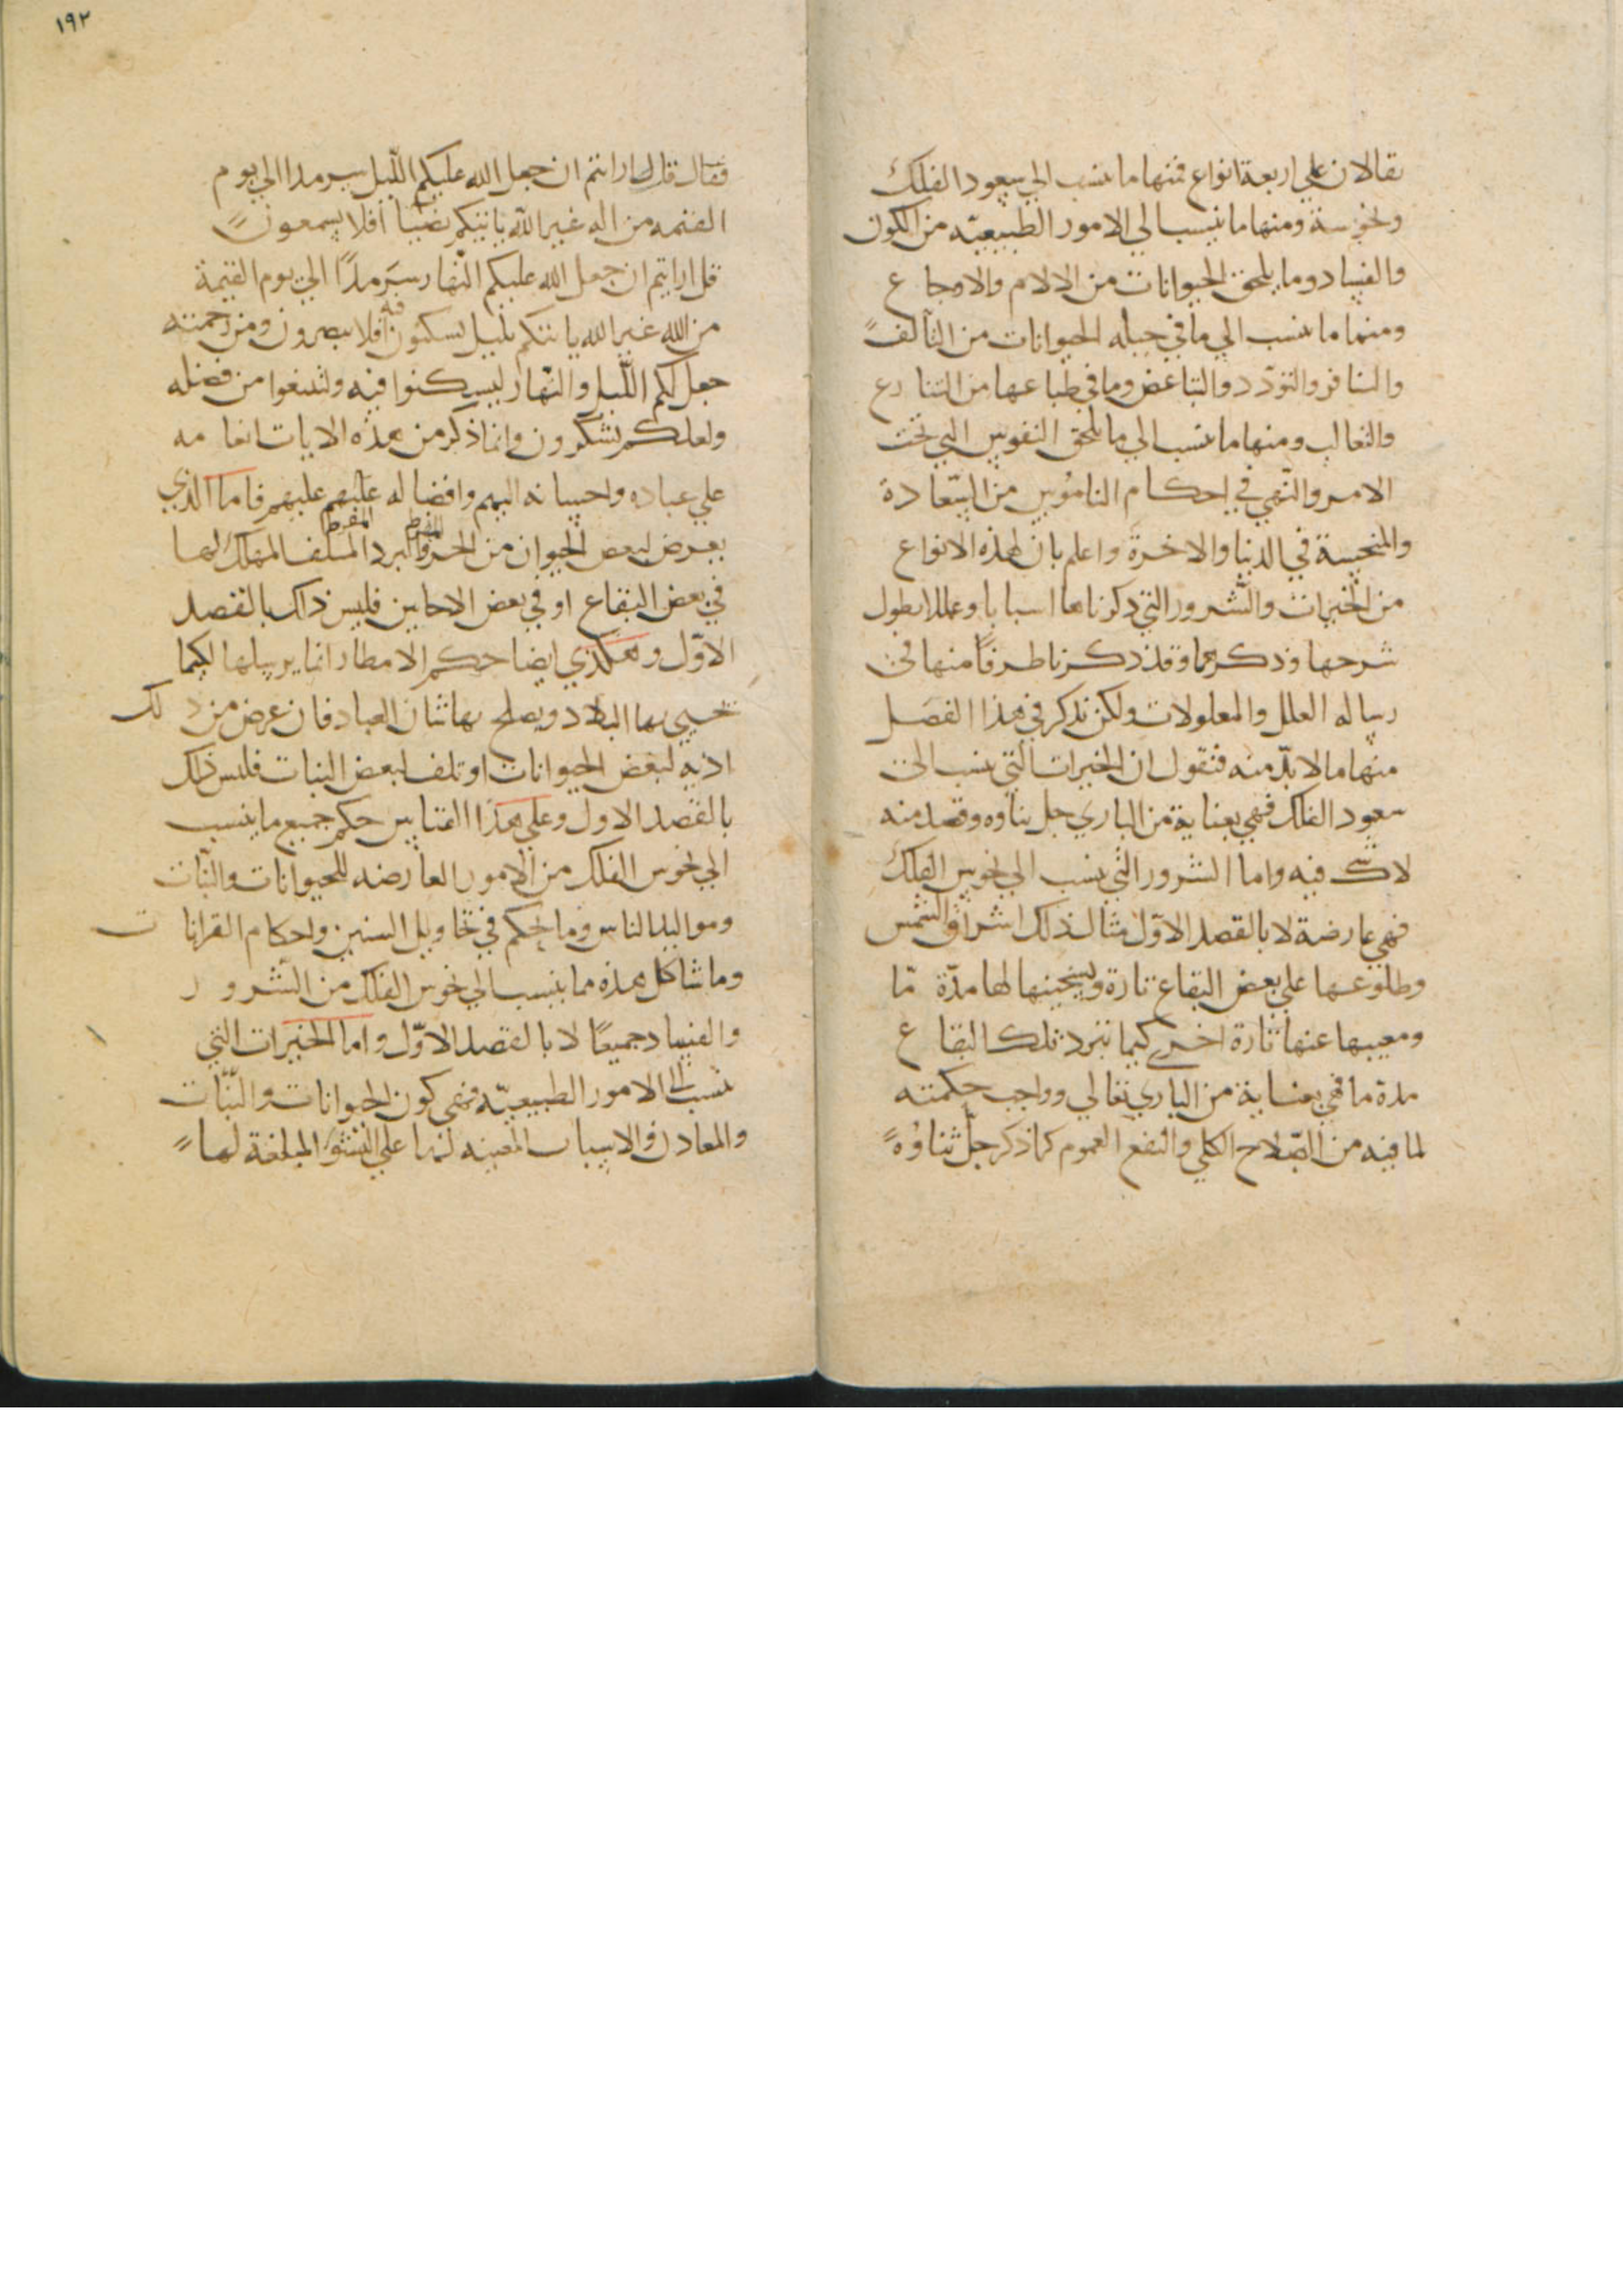 يقالان علي اربعة انواع فمنها ما ينسب الي سعود الفلك
ونحوسة ومنها ما ينسب الي الامور الطبيعيّه من الكون
والفساد وما يلحق الحيوانات من الالام والاوجاع
ومنها ما ينسب الي ما في جبله الحيوانات من التآلف
والتنافر والتودّد والتباغض وما في طباعها من التنازع
والتغالب ومنها ما ينسب الي ما يلحق النفوس التي تحت
الامر والنّهي في احكام الناموس من السّعادة
والمنحسة في الدنيا والاخرة واعلم بان لهذه الانواع
من الخيرات والشّرور التي ذكرناها اسبابا وعللا يطول
شرحها وذكرها وقد ذكرنا طرفًا منها في
رساله العلل والمعلولات ولكن نذكر في هذا الفصل
منها ما لا بدّ منه فنقول ان الخيرات التي ينسب الي
سعود الفلك فهي بعناية من الباري جل ثناوه وقصد منه
لا شك فيه واما الشرور التي ينسب الي نحوس الفلك
فهي عارضة لا بالقصد الاوّل مثال ذلك اشراق الشمس
وطلوعها علي بعض البقاع تارة وتسخينها لها مدّة مّا
ومغيبها عنها تارة اخري كيما تبرد تلك البقاع
مدة ما فهي بعناية من الباري تعالي وواجب حكمته
لما فيه من الصّلاح الكلي والنفع العموم كما ذكر جلّ ثناؤهُ
١٩٢
فقال قل ارايتم ان جعل الله عليكم اللّيل سرمدا الي يوم
القيمه من اله غير الله ياتيكم بضيا افلا يسمعون
قل ارايتم ان جعل الله عليكم النّهار سَرمدًا الي يوم القيمة
من الله غير الله ياتيكم بليل تسكنون فيه افلا يبصرون ومن رحمته
جعل لكم اللّيل والنّهار ليسكنوا فيه ولتبتغوا من فضله
ولعلكم تشكرون وانما ذكر من هذه الايات انعامه
علي عباده واحسانه اليهم وافضاله عليهم عليهم فاما الذي
يعرض لبعض الحيوان من الحر المفرط والبرد المفرط المتلف المهلك لها
في بعض البقاع او في بعض الاحايين فليس ذاك بالقصد
الاوّل وهكذي ايضا حكم الامطار انما يرسلها لكيما
تحيي بها البلاد ويصلح بها شان العباد فان عرض من ذلك
اذيه لبعض الحيوانات او تلف لبعض النبات فليس ذلك
بالقصد الاول وعلي هذا القياس حكم جميع ما ينسب
الي نحوس الفلك من الامور العارضه للحيوانات والنّبات
ومواليد الناس وما يحكم في تحاويل السنين واحكام القرانات
وما شاكل هذه مما ينسب الي نحوس الفلك من الشرور
والفساد جميعًا لا بالقصد الاوّل واما الخيرات التي
تنسب الي الامور الطبيعيّه فهي كون الحيوانات والنّبات
والمعادن والاسباب المعينه لها علي النشؤ المبلغة لها